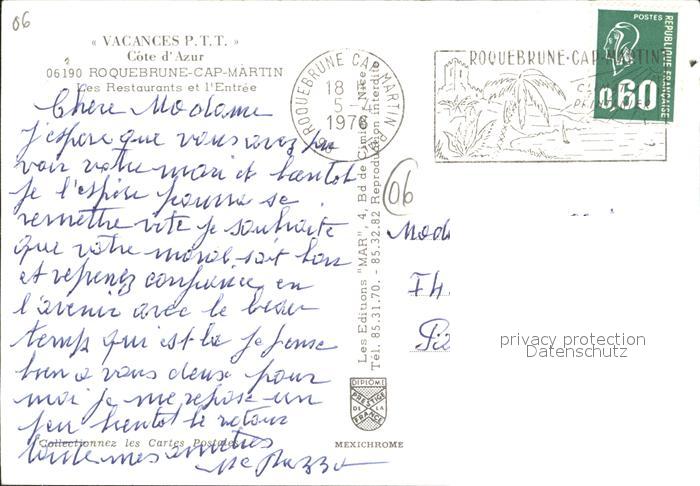 06
« VACANCES P.T.T. »
Côte d'Azur
06190 ROQUEBRUNE-CAP-MARTIN
Les Restaurants et l'Entrée
Chère Madame
j'espère que vous avez pu
voir votre mari et bientot
je l'espère pourra se
remettre vite je souhaite
que votre moral soit bon
et reprenez confiance en
l'avenir avec le beau
temps qui est là je pense
bien à vous deux pour
moi je me repose un
peu bientot le retour
toutes mes amitiés
Collectionnez les Cartes Postales
ROQUEBRUNE CAP MARTIN
18
5-4
1976
ROQUEBRUNE-CAP-MARTIN
POSTES
REPUBLIQUE FRANÇAISE
0,60
Les Editions "MAR", 4, Bd de Cimiez - Nice
Tél. 85.31.70. - 85.32.82 Reproduction interdite
06
DIPLOME
PRESTIGE
DE LA
FRANCE
MEXICHROME
privacy protection
Datenschutz